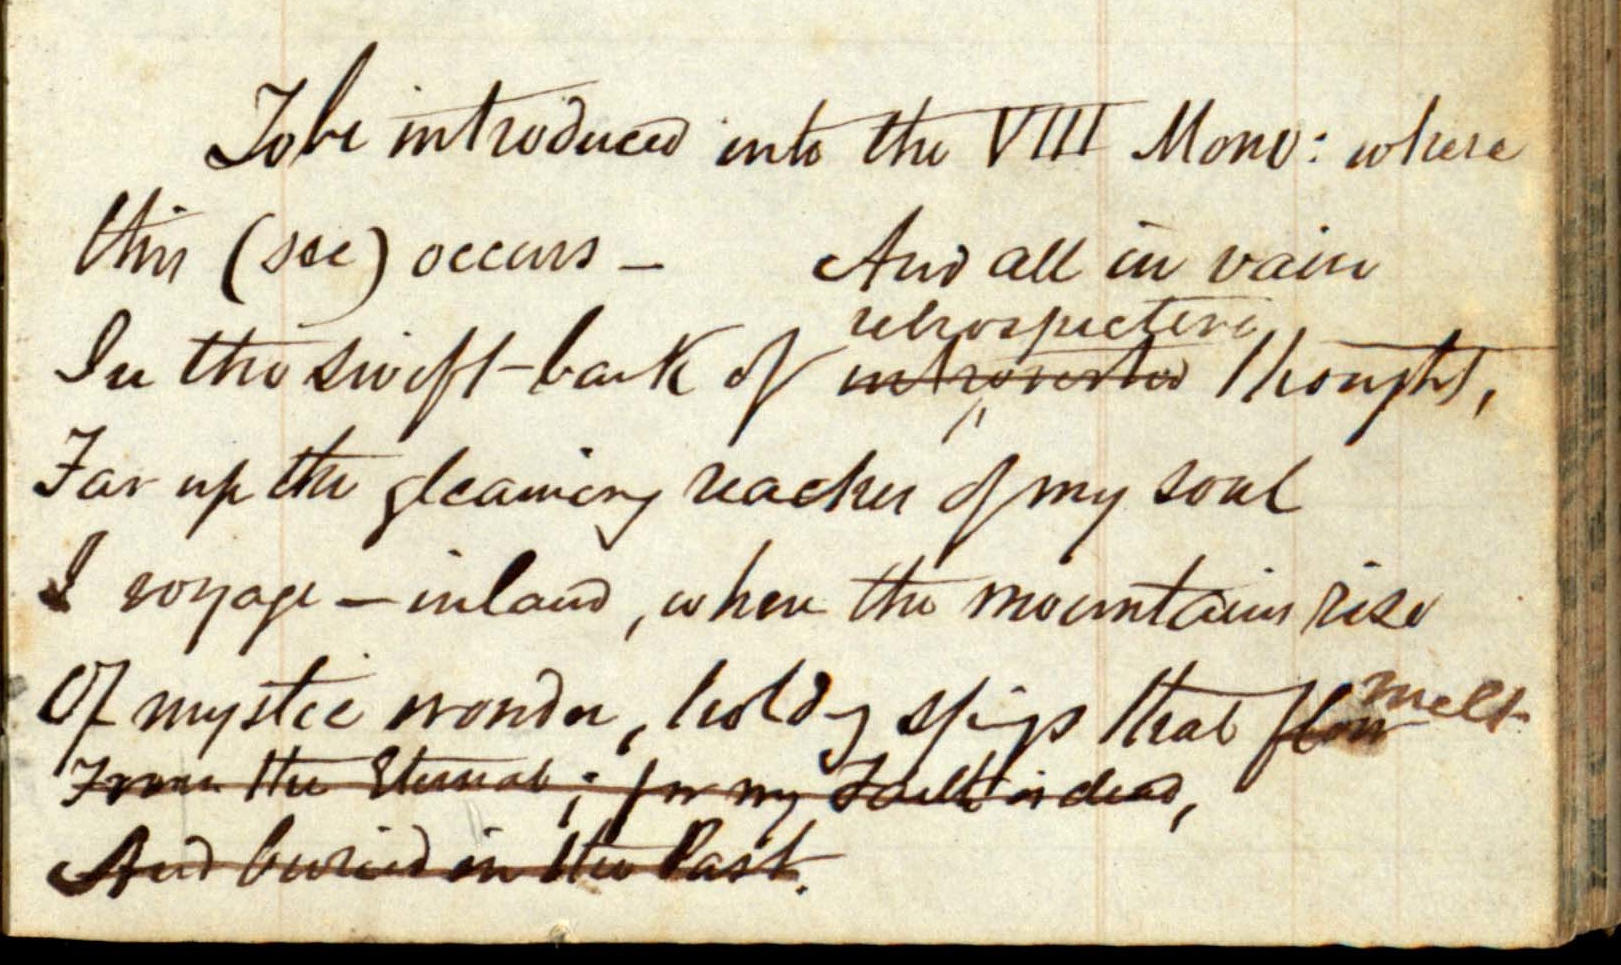 To be introduced into the VIII Mono: where
this (see) occurs – And all in vain
retrospective
In the swift-bark of introverted thought,
Far up the gleaming reaches of my soul
I voyage – inland, where the mountains rise
Of mystic wonder, holdg spigs that flow melt
From the Eternal; for my Faith is dead,
And buried in the Past.